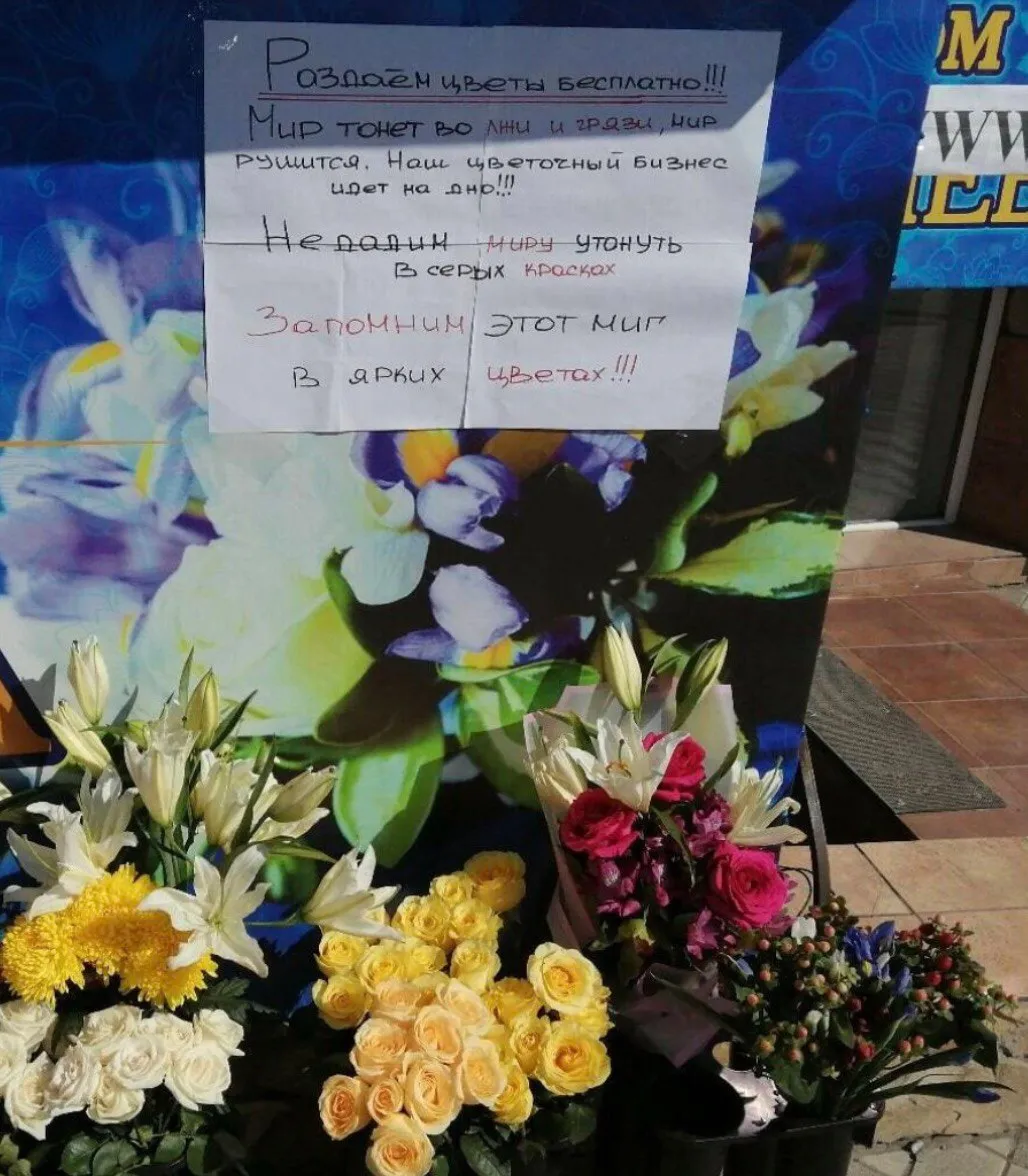 Раздаём цветы бесплатно!!!
Мир тонет во лжи и грязи, мир
рушится. Наш цветочный бизнес
идет на дно!!!
Не дадим миру утонуть
в серых красках
Запомним этот миг
в ярких цветах!!!
ОМ
WW